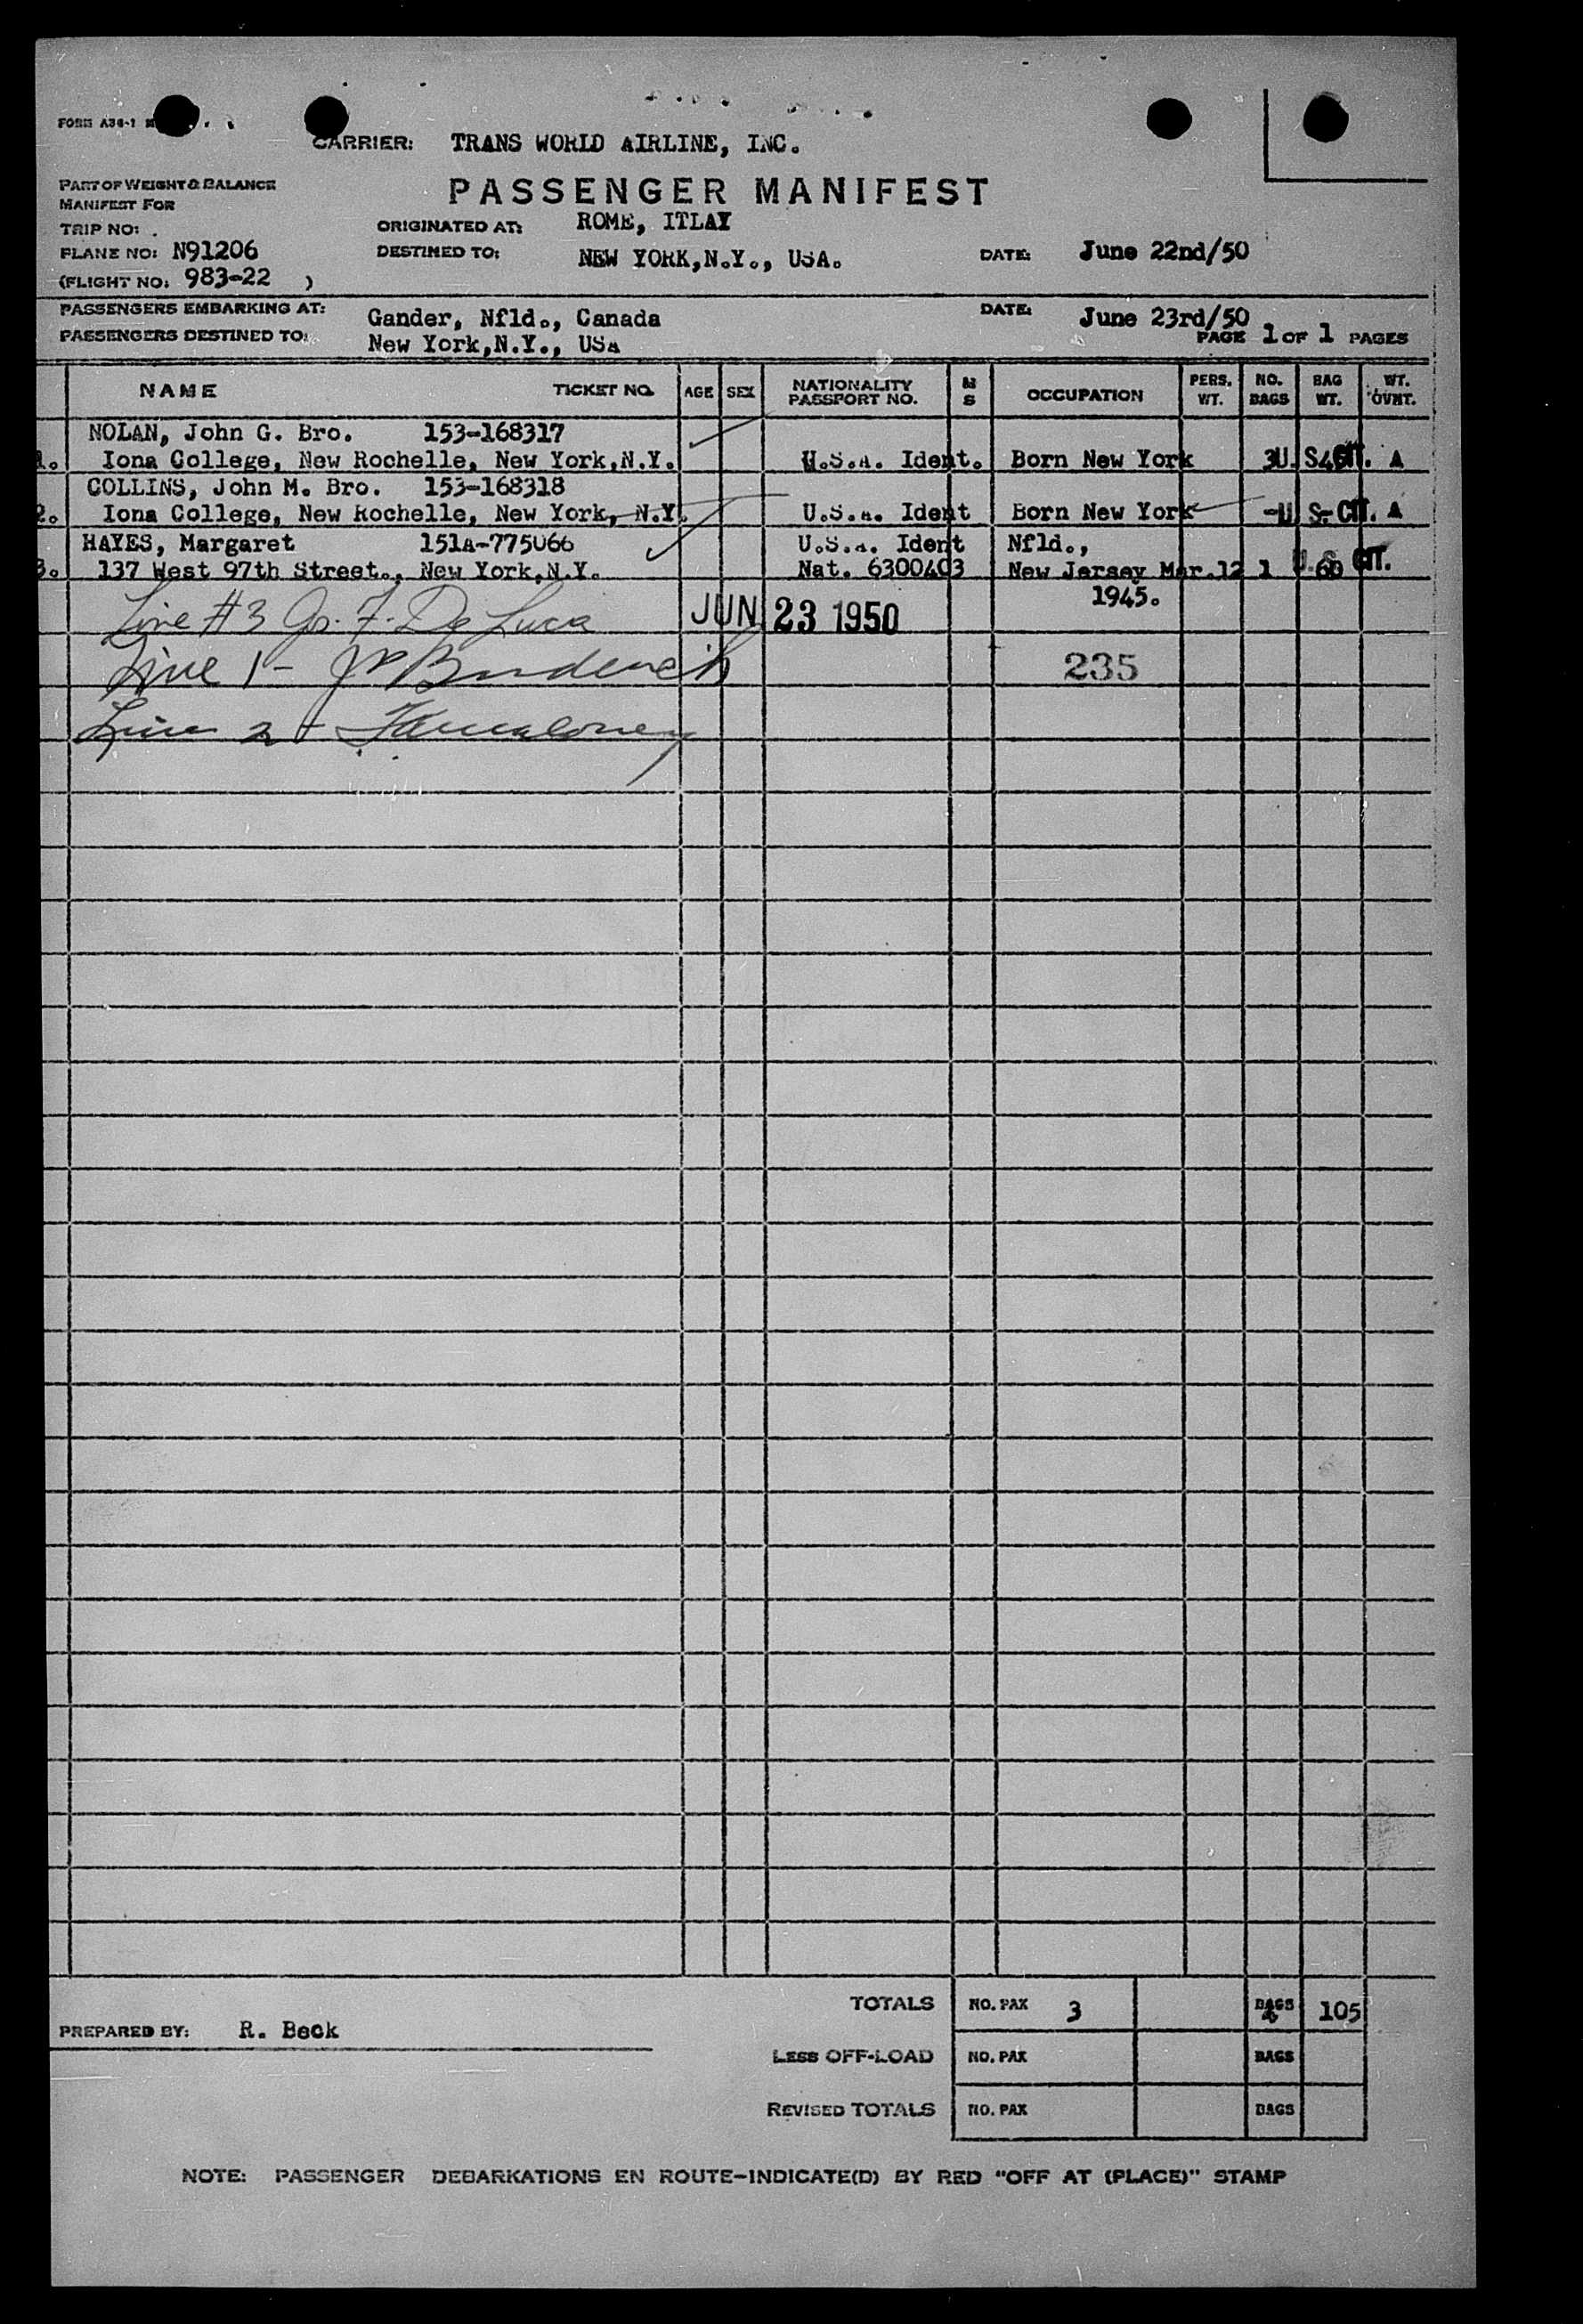 FORM A36-1
CARRIER: TRANS WORLD AIRLINE, INC.
PART OF WEIGHT & BALANCE
MANIFEST FOR
PASSENGER MANIFEST
TRIP NO: .
ORIGINATED AT: ROME, ITLAY
PLANE NO: N91206
DESTINED TO: NEW YORK,N.Y., USA.
DATE: June 22nd/50
(FLIGHT NO: 983-22 )
PASSENGERS EMBARKING AT: Gander, Nfld., Canada
DATE: June 23rd/50
PASSENGERS DESTINED TO: New York,N.Y., USA
PAGE 1 OF 1 PAGES
NAME TICKET NO. AGE SEX NATIONALITY PASSPORT NO. M S OCCUPATION PERS. WT. NO. BAGS BAG WT. WT. OVNT.
NOLAN, John G. Bro. 153-168317
1. Iona College, New Rochelle, New York,N.Y. U.S.A. Ident. Born New York 3 U. S. CIT. A
COLLINS, John M. Bro. 153-168318
2. Iona College, New Rochelle, New York, N.Y. U.S.A. Ident Born New York - U S- CIT. A
HAYES, Margaret 151A-775066 U.S.A. Ident Nfld.,
3. 137 West 97th Street., New York,N.Y. Nat. 6300403 New Jersey Mar.12 1 60 U. S. CIT.
1945.
Line #3 De Luca
JUN 23 1950
Line 1 -
235
Line 2 -
TOTALS NO. PAX 3 BAGS 105
PREPARED BY: R. Beck
LESS OFF-LOAD NO. PAX BAGS
REVISED TOTALS NO. PAX BAGS
NOTE: PASSENGER DEBARKATIONS EN ROUTE-INDICATE(D) BY RED "OFF AT (PLACE)" STAMP